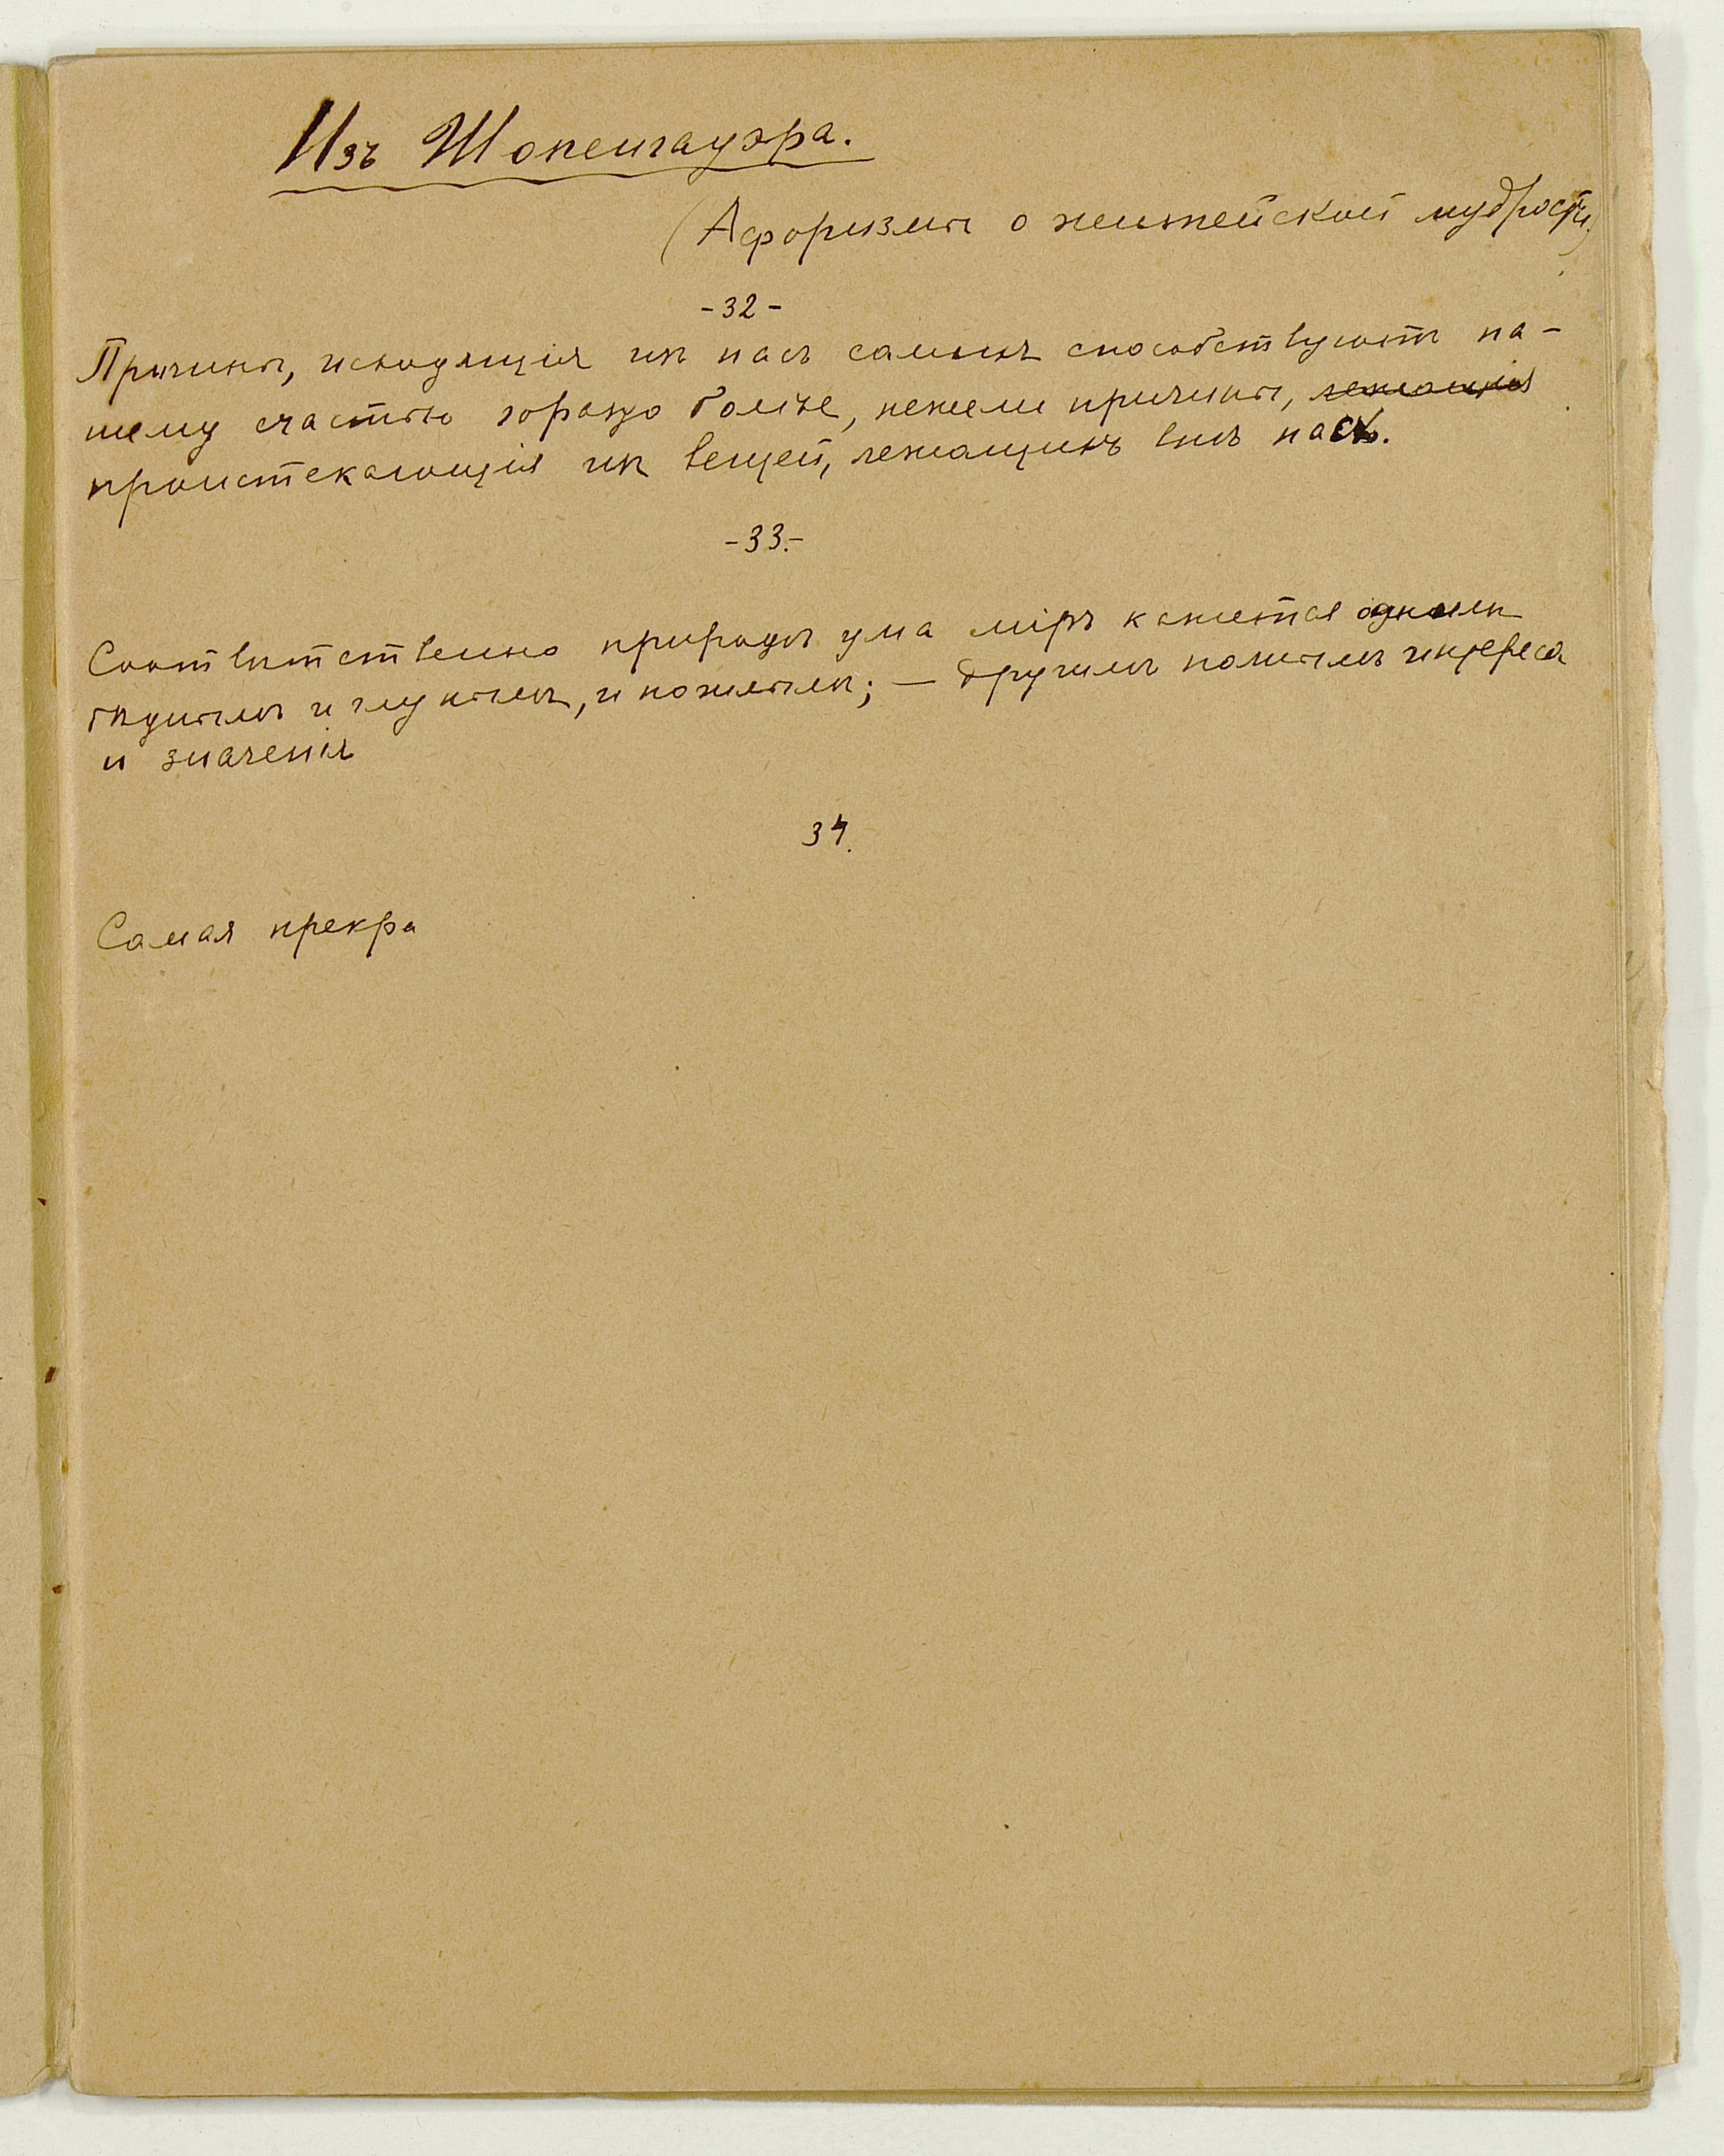 Изъ Шопенгауэра.
(Афоризмы о житейской мудрости.)
-32-
Причины, исходящія изъ насъ самихъ способствуютъ на-
шему счастью гораздо болѣе, нежели причины, лежащія
проистекающія изъ вещей, лежащихъ внѣ насъ.
-33.-
Соотвѣтственно природѣ ума міръ кажется однимъ
бѣднымъ и глупымъ, и пошлымъ; — другимъ полнымъ интереса
и значенія
34.
Самая прекра